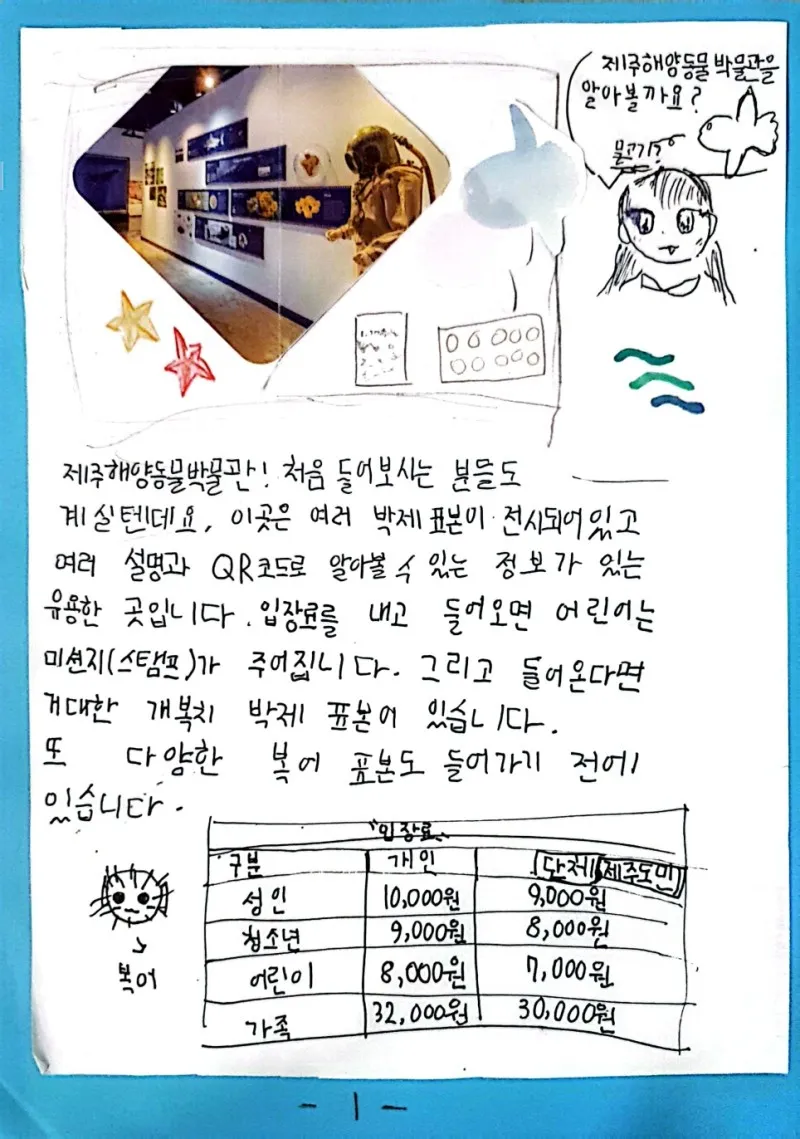 제주해양동물박물관을
알아볼까요?
물고기?
제주해양동물박물관! 처음 들어보시는 분들도
계실텐데요, 이곳은 여러 박제 표본이 전시되어있고
여러 설명과 QR코드로 알아볼 수 있는 정보가 있는
유용한 곳입니다. 입장료를 내고 들어오면 어린이는
미션지(스탬프)가 주어집니다. 그리고 들어온다면
거대한 개복치 박제 표본이 있습니다.
또 다양한 복어 표본도 들어가기 전에
있습니다.
"입장료"
구분 개인 단체 제주도민
성인 10,000원 9,000원
청소년 9,000원 8,000원
어린이 8,000원 7,000원
가족 32,000원 30,000원
복어
- 1 -